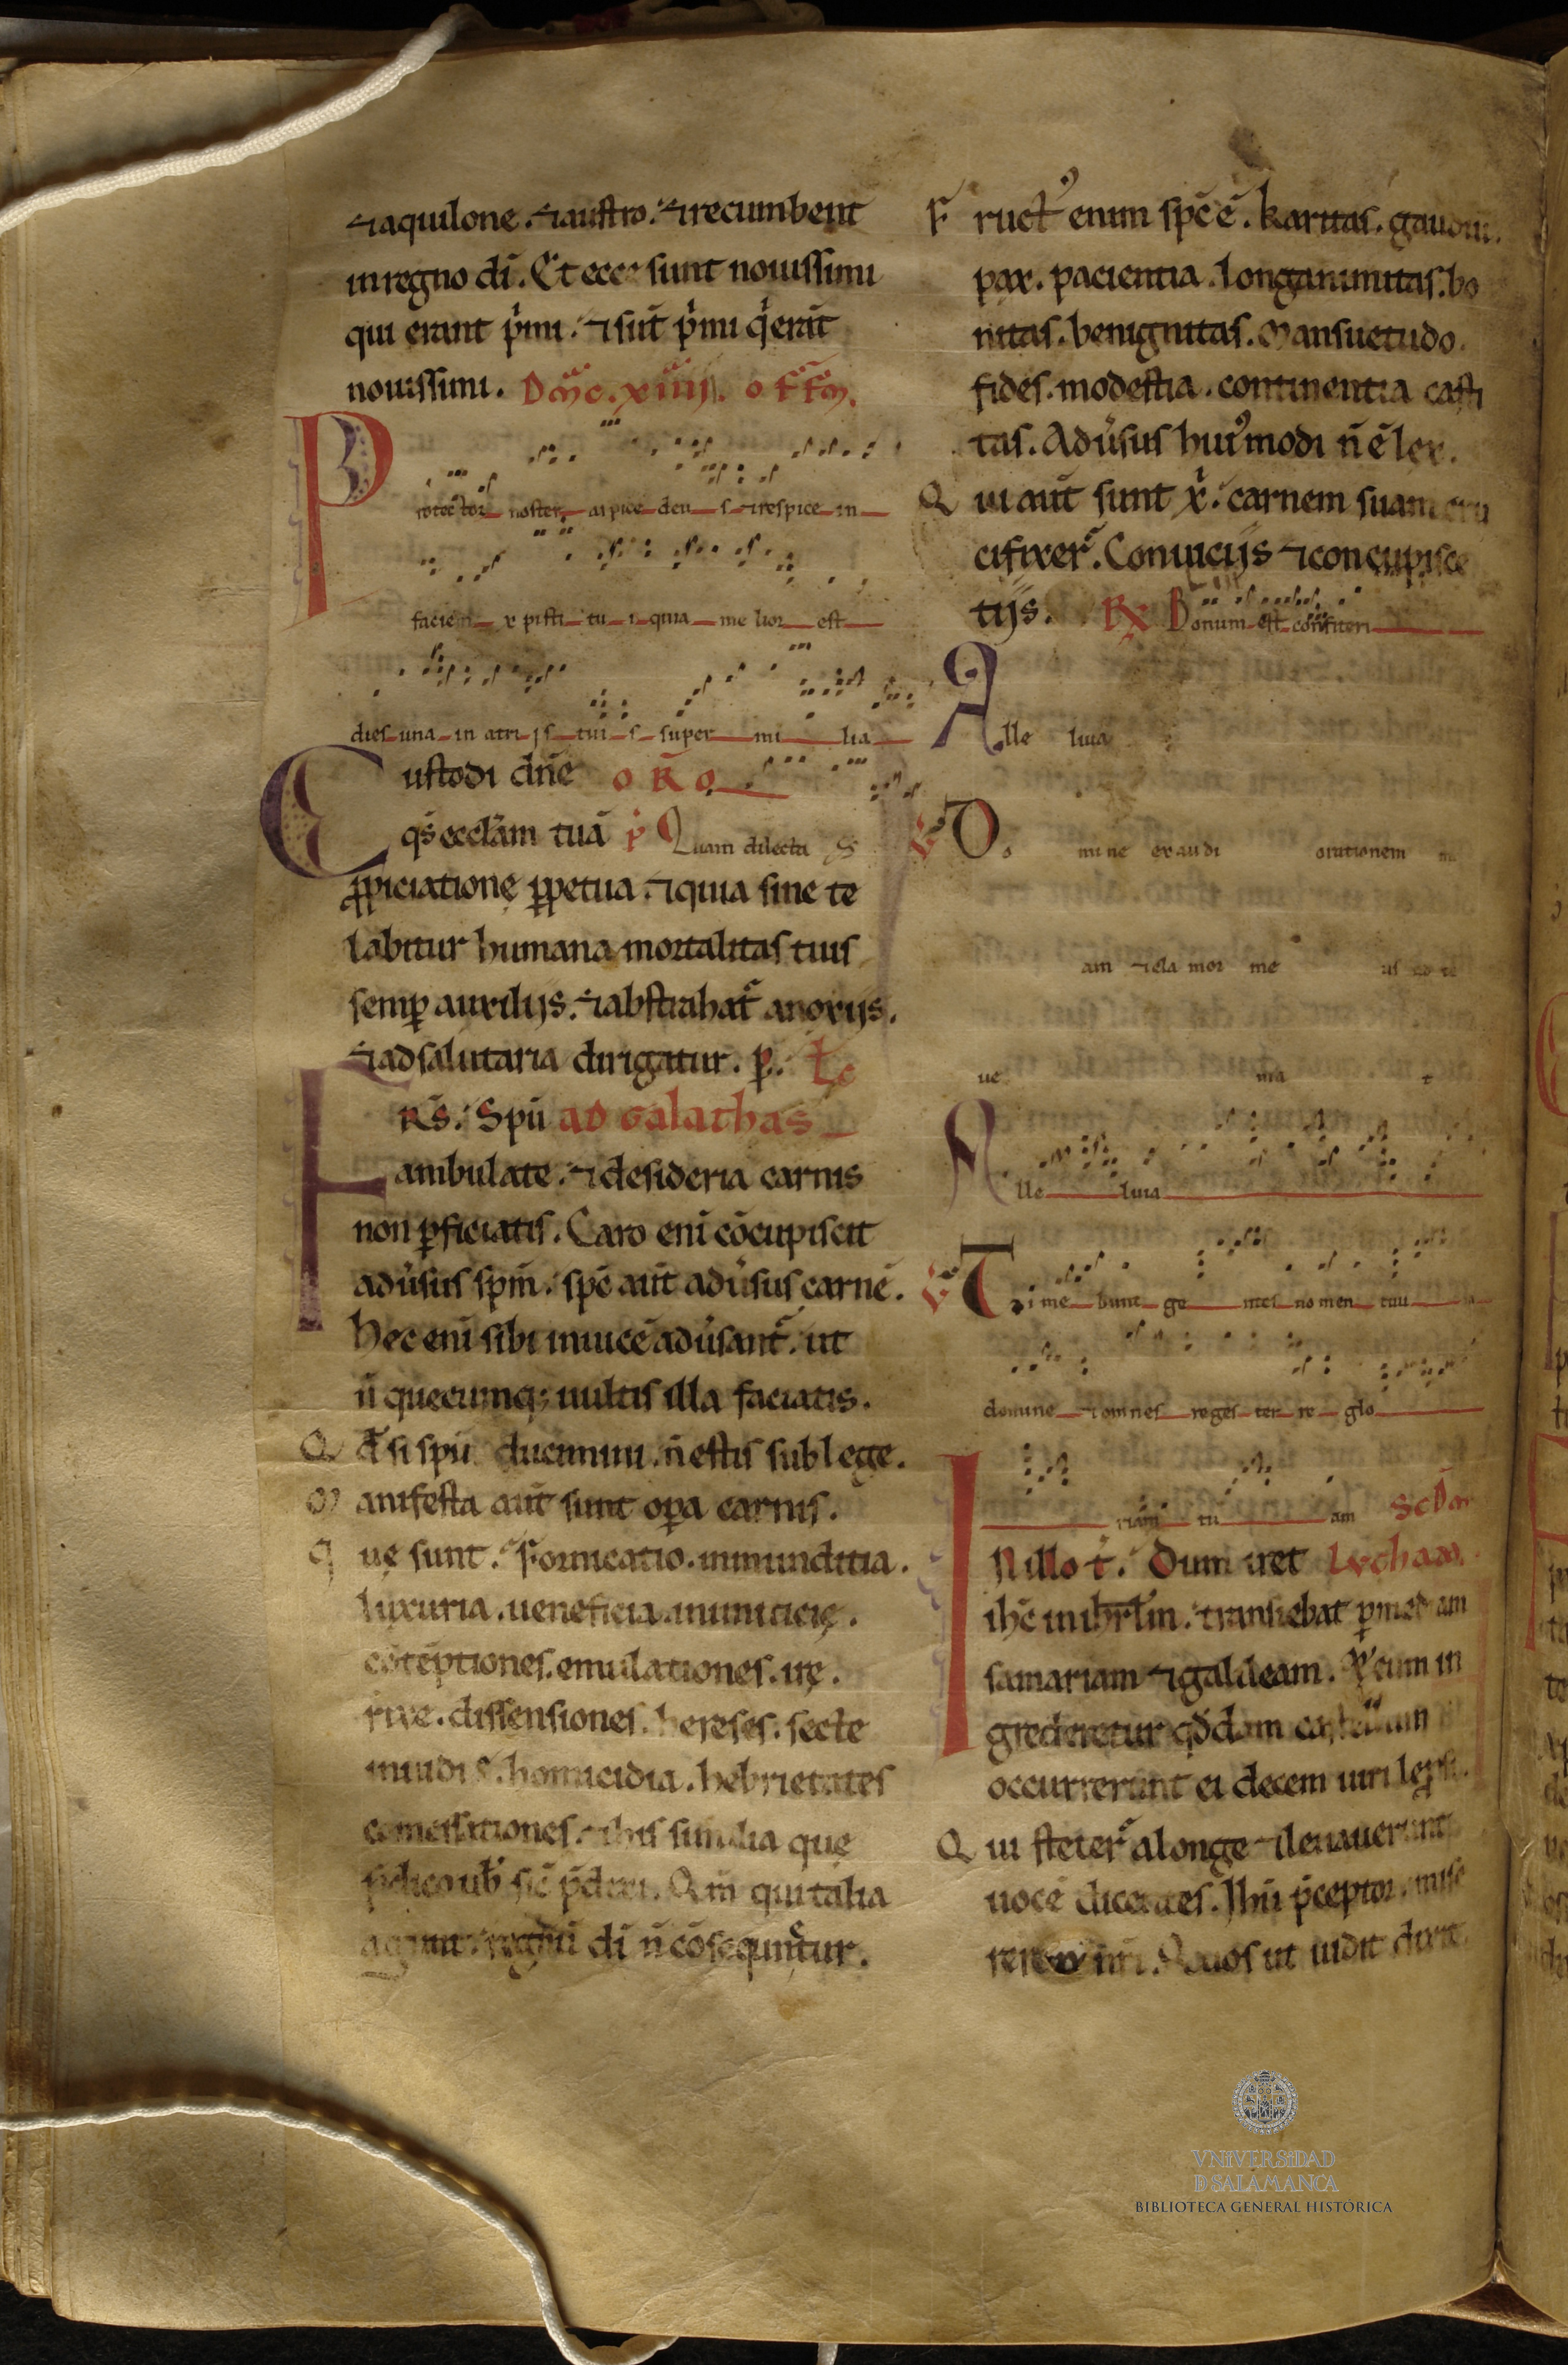 ⁊aquilone. ⁊austro. ⁊recumbent
in regno dī. Et ecce sunt nouissimi
qui erant p̍mi. ⁊ sūt p̍mi q̍ erāt
nouissimi. Dm̄c. xiiij. offm̄.
Protector noster aspice deus ⁊respice in
faciem xpisti tui quia melior est
dies una in atrijs tuis super milia
Custodi dn̄e oro
qs̄ eccl̄am tuā p̍ Quam dilecta
ꝓpiciatione ꝑpetua. ⁊quia sine te
labitur humana mortalitas tuis
semꝑ auxilijs. ⁊abstrahat̄ anoxijs.
⁊ad salutaria dirigatur. p̄. Le
Frs̄. Spū ad galathas
ambulate. ⁊desideria carnis
non ꝑficiatis. Caro enī cōcupiscit
adūsus spm̄. spc̄ aūt adūsus carnē.
Hec enī sibi inuicē adūsant̄. ut
n̄ quecumq; uultis illa faciatis.
Qd̄ si spū ducimini. n̄ estis sub lege.
Manifesta aūt sunt oꝑa carnis.
que sunt. Fornicatio. inmunditia.
luxuria. ueneficia. inimicicie.
cōtēptiones. emulationes. ire.
rixe. dissensiones. hereses. secte
inuidie. homicidia. hebrietates
comessationes. ⁊his similia que
p̄dico uob̄ sic̄ p̄dixi. Qm̄ qui talia
agunt regnū dī n̄ cōsequntur.
Fruct᾽ enim spc̄ ē. karitas. gaudiu.
pax. pacientia. longanimitas. bo
nitas. benignitas. Mansuetudo.
fides. modestia. continentia casti
tas. Adūsus hui᾽modi n̄ ē lex.
Qui aūt sunt x̄. carnem suam cru
cifixer̄. Conuicijs ⁊concupisce
tijs. R Bonum est confiteri
Alle luia
V Do mine exaudi orationem m
am ⁊cla mor me us ad te
ue nia t
Alle luia
V Ti me bunt ge ntes nomen tuu
domine ⁊omnes reges ter re glo
riam tu am Scd̄m
IN illo t̄. Dum iret Lucham.
ihc̄ inihrl̄m. transiebat ꝑ mediam
samariam ⁊galileam. ⁊cum in
grederetur qd̄dam castellum
occurrerunt ei decem uiri leprosi.
Qui steter̄ alonge ⁊leuauerunt
uocē dicentes. Ihū p̄ceptor. mise
rere nr̄i. Quos ut uidit dixit
VNIVERSIDAD
D SALAMANCA
BIBLIOTECA GENERAL HISTÓRICA